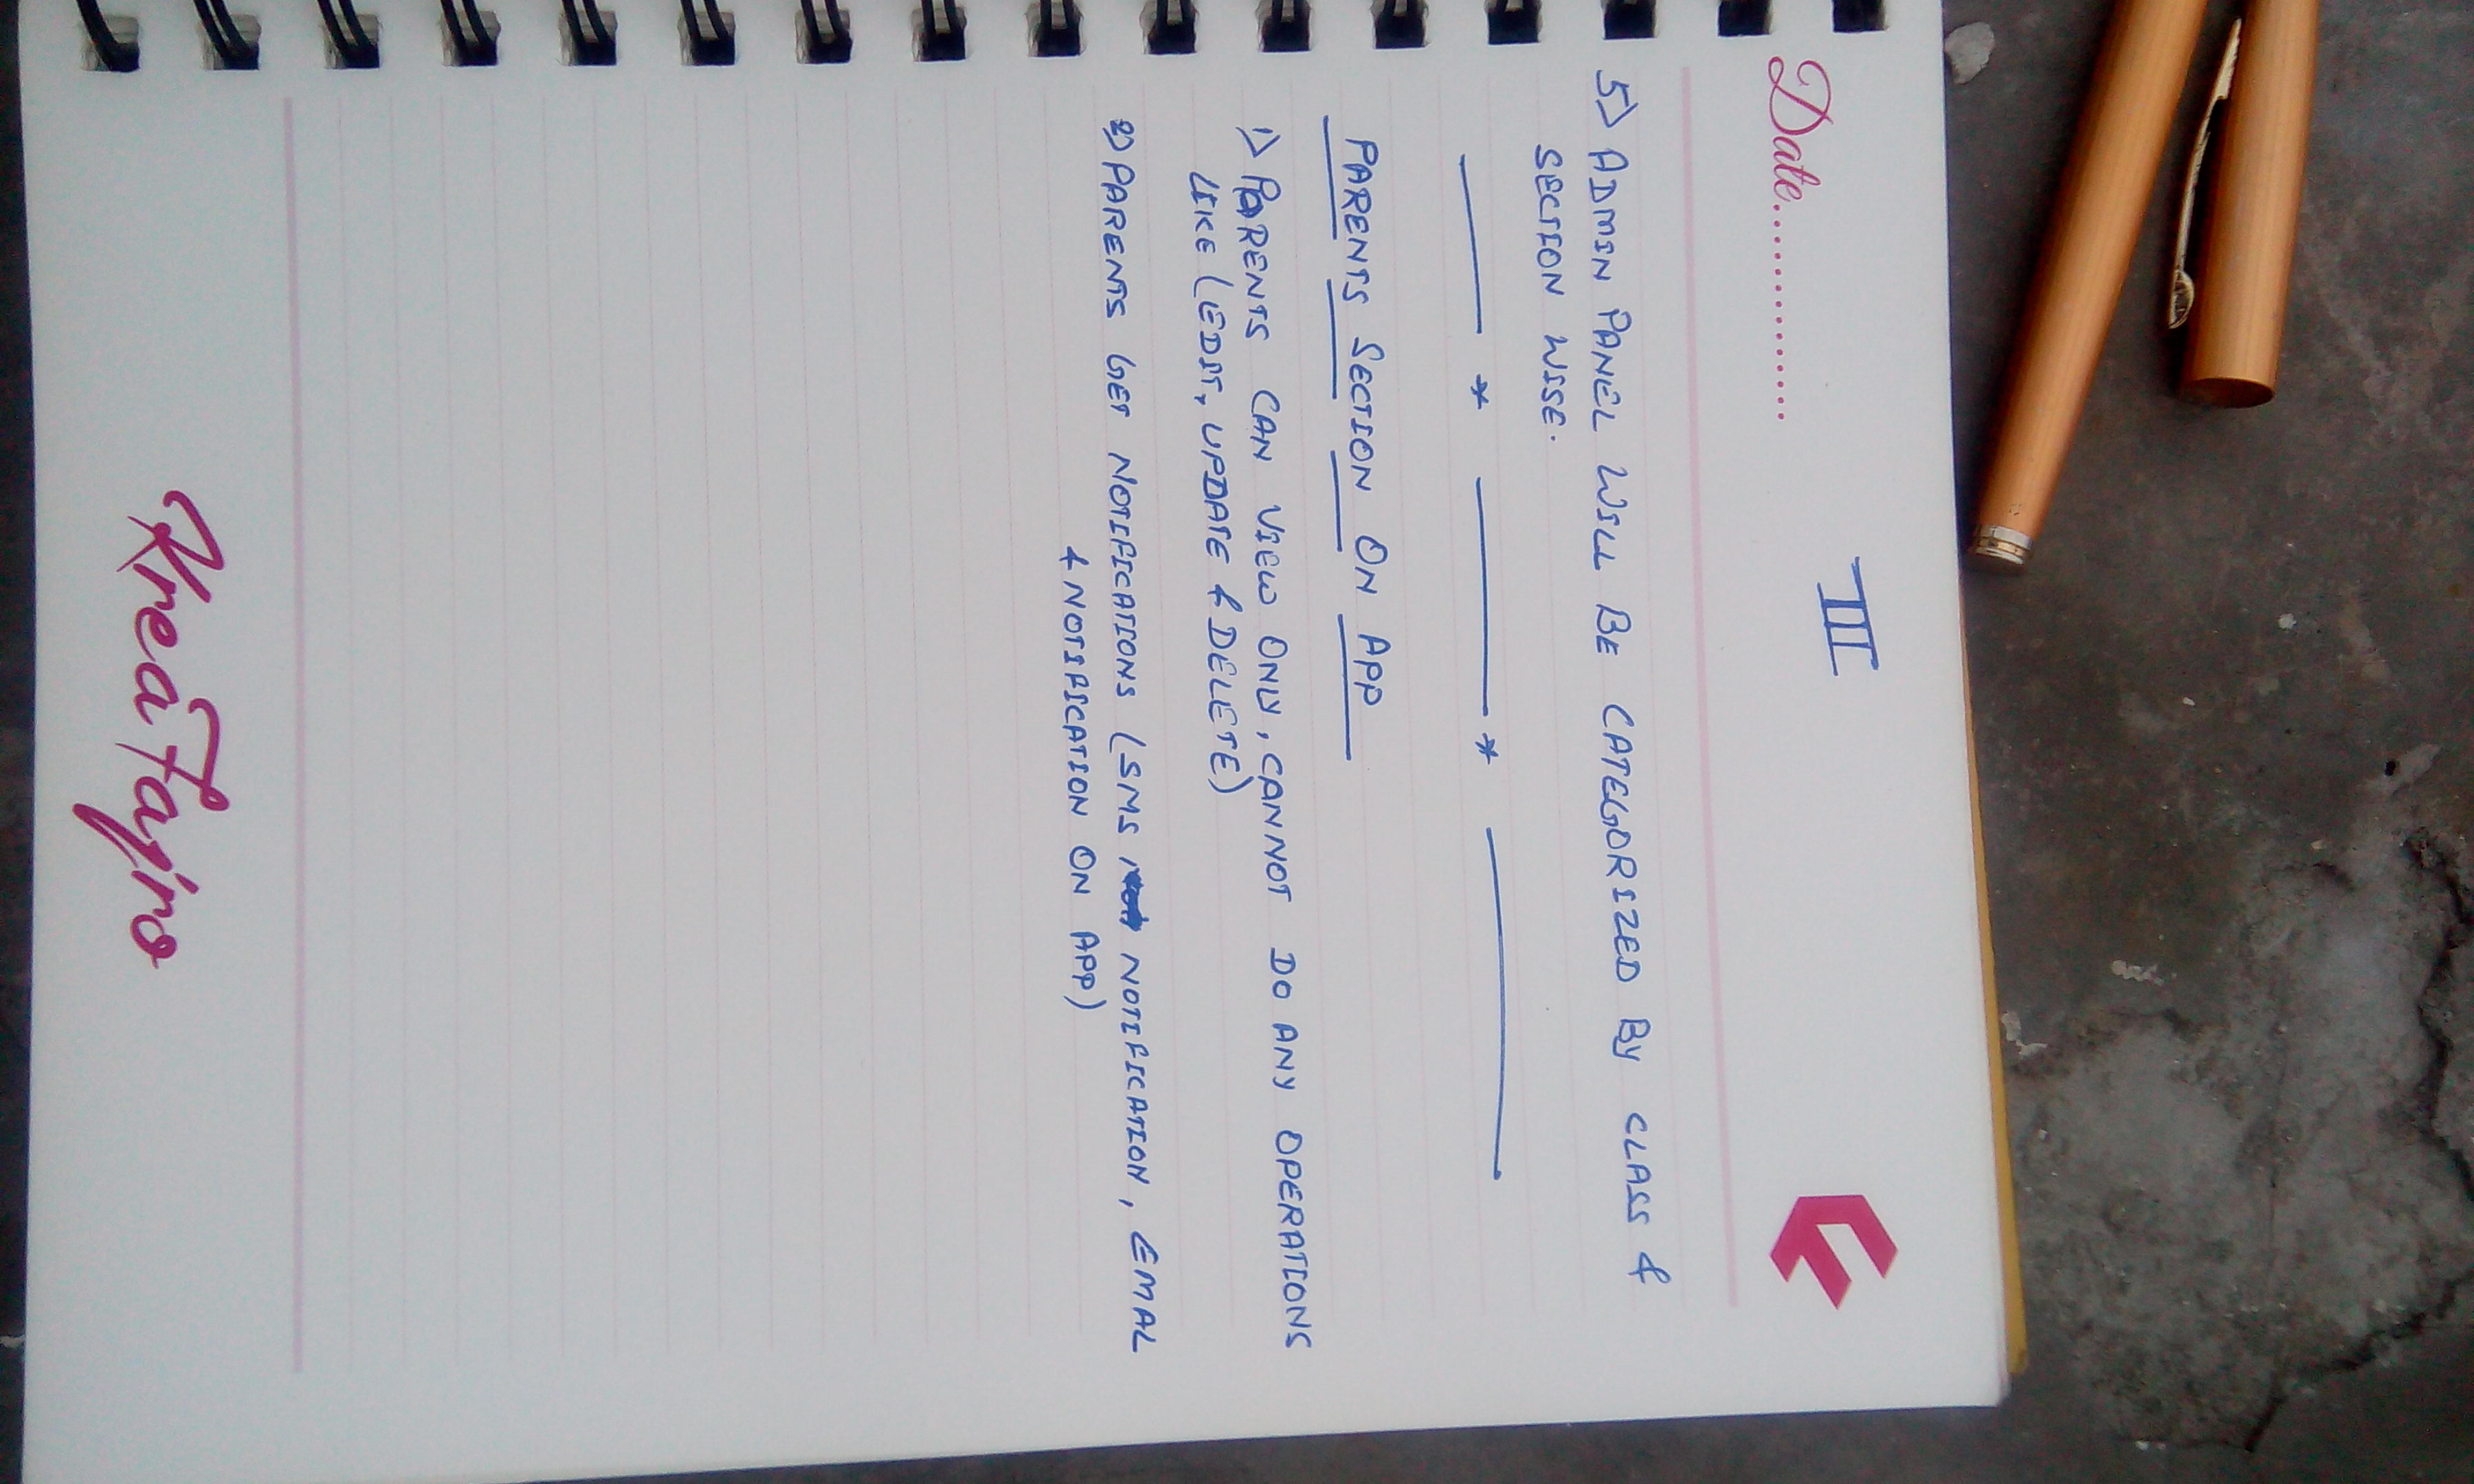 III
Date..............
5) ADMIN PANEL WILL BE CATEGORIZED BY CLASS &
SECTION WISE.
PARENTS SECTION ON APP
1) PARENTS CAN VIEW ONLY, CANNOT DO ANY OPERATIONS
LIKE (EDIT, UPDATE & DELETE)
2) PARENTS GET NOTIFICATIONS (SMS NOTIFICATION, EMAL
& NOTIFICATION ON APP)
KreaFajro